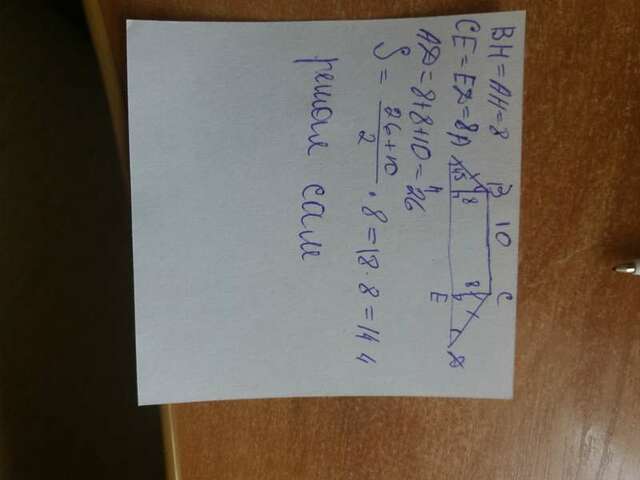 B 10 C
A 45 8 8 D
H E
BH = AH = 8
CE = ED = 8
AD = 8 + 8 + 10 = 26
S = 26 + 10 / 2 · 8 = 18 · 8 = 144
решал сам